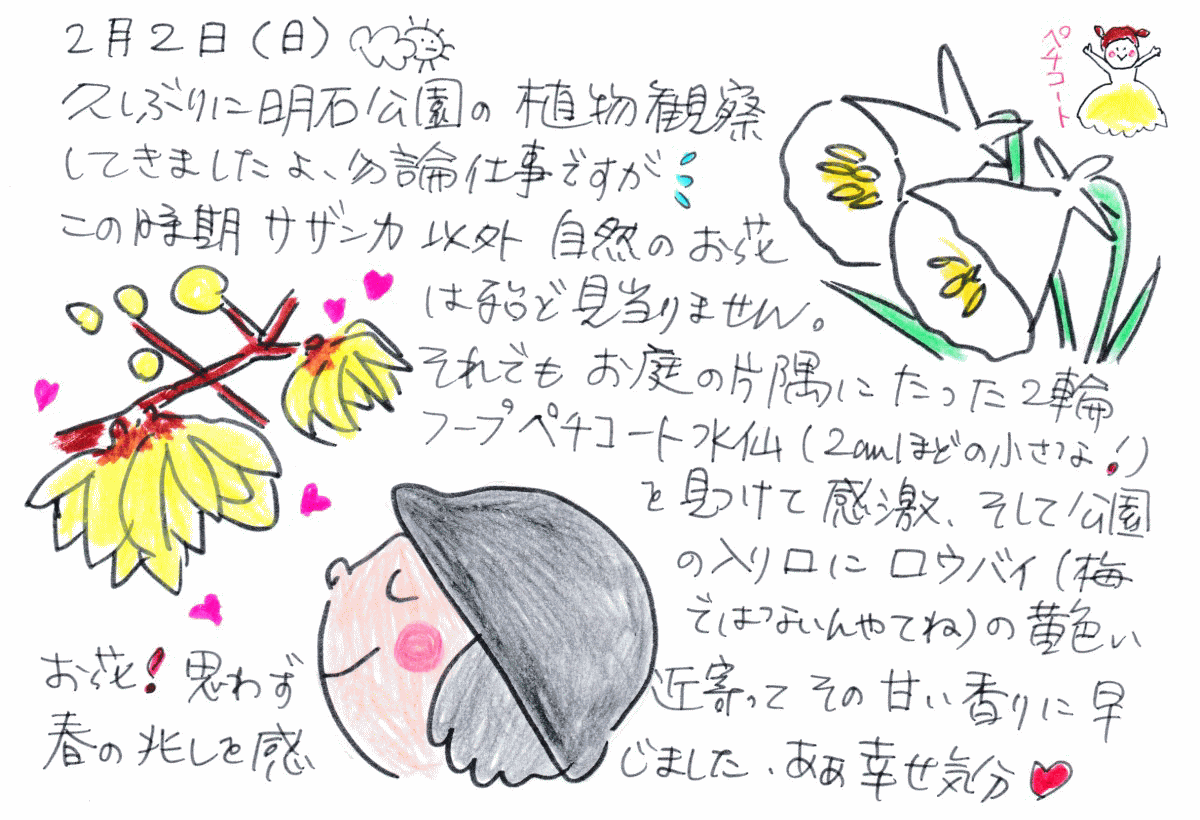 2月2日(日)
ペチコート
久しぶりに明石公園の植物観察
してきましたよ、勿論仕事ですが
この時期サザンカ以外自然のお花
は殆ど見当りません。
それでもお庭の片隅にたった2輪
フープペチコート水仙(2cmほどの小さな!)
を見つけて感激、そして公園
の入り口にロウバイ(梅
ではないんやてね)の黄色い
お花!思わず近寄ってその甘い香りに早
春の兆しを感じました、ああ幸せ気分